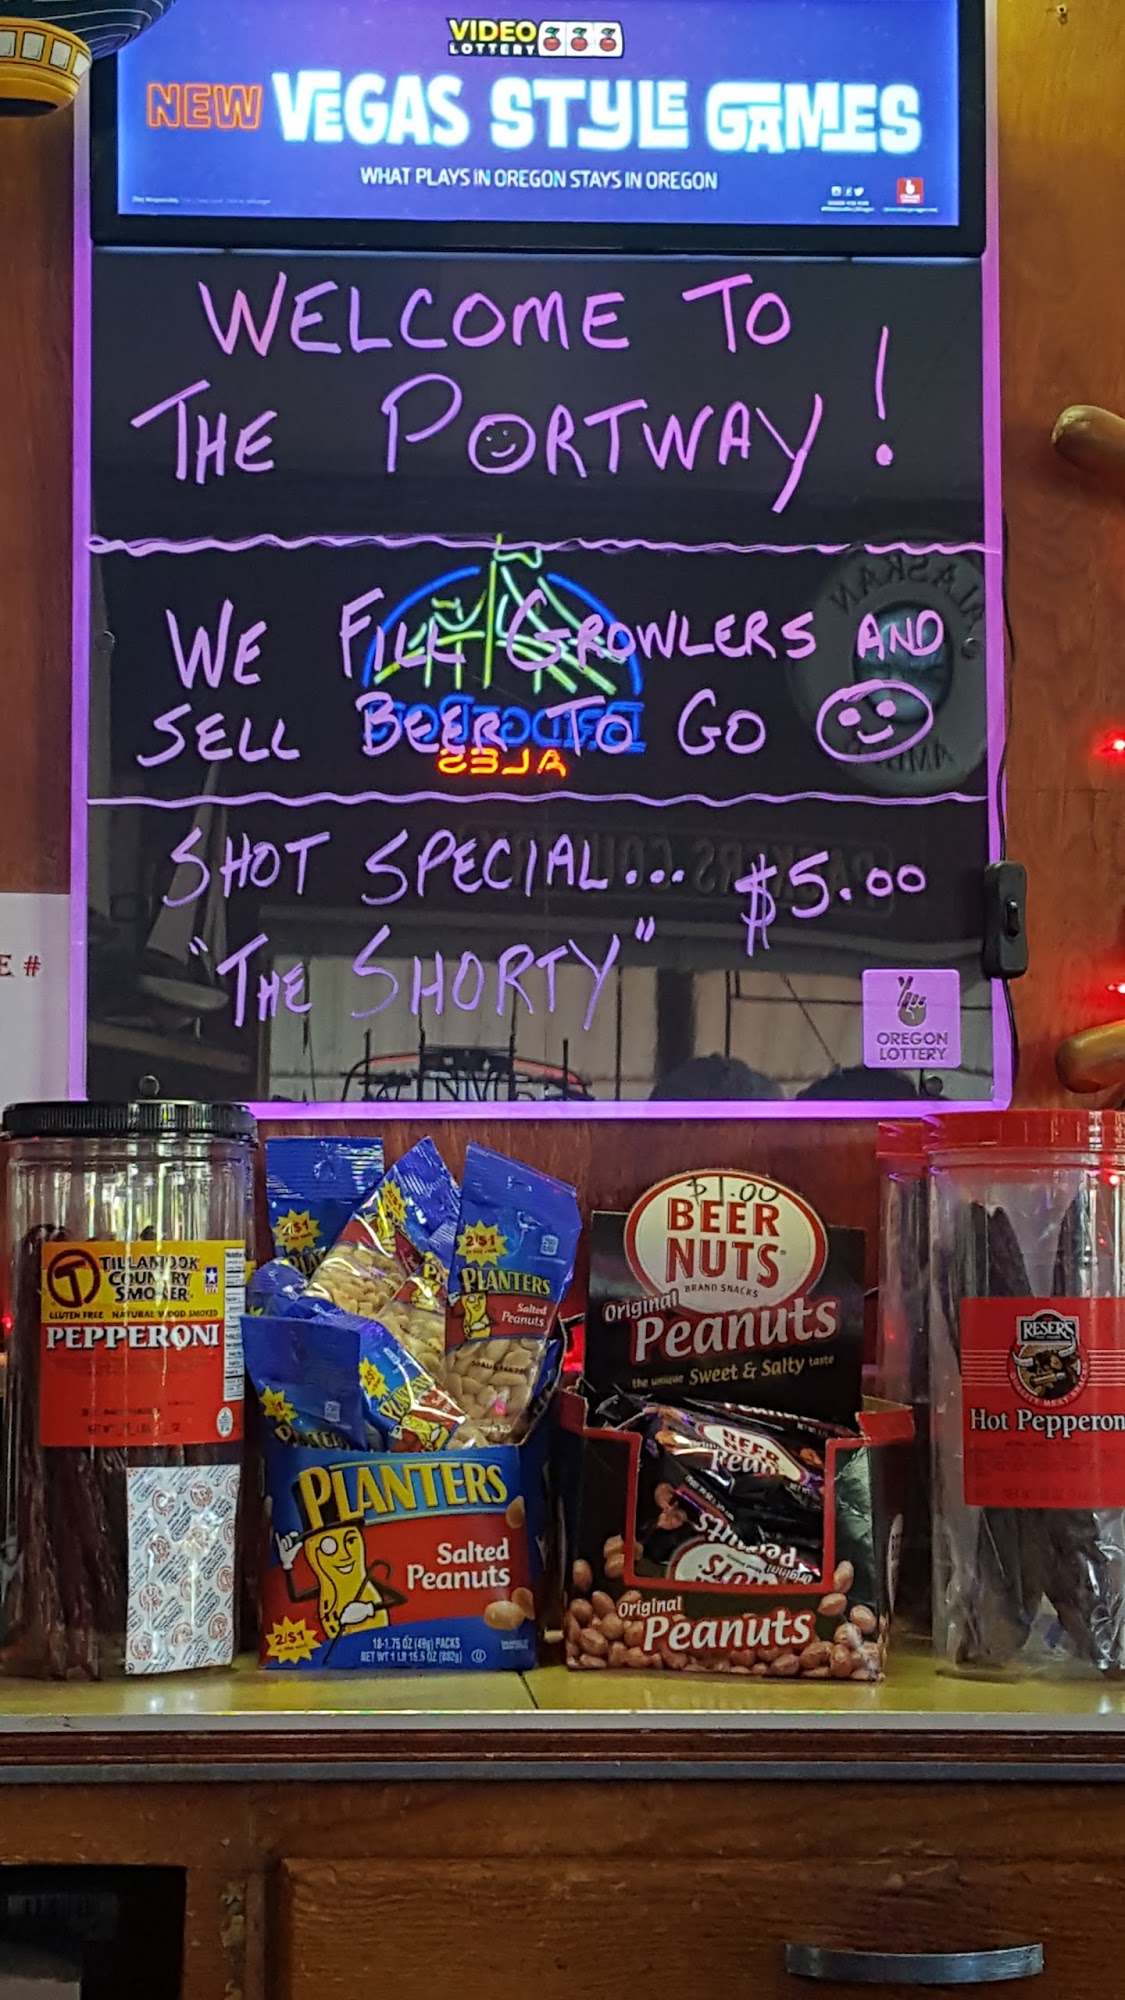 VIDEO
LOTTERY
NEW VEGAS STYLE GAMES
WHAT PLAYS IN OREGON STAYS IN OREGON
WELCOME TO
THE PORTWAY!
WE FILL GROWLERS AND
SELL BEER TO GO
BRIDGEPORT
ALES
ALASKAN
AMBER
SHOT SPECIAL... $5.00
"THE SHORTY"
E #
OREGON
LOTTERY
TILLAMOOK
COUNTRY
SMOKER
GLUTEN FREE NATURAL WOOD SMOKED
PEPPERONI
2/$1
2/$1
PLANTERS
Salted
Peanuts
PLANTERS
Salted
Peanuts
2/$1
18-1.75 OZ (49g) PACKS
NET WT 1 LB 15.5 OZ (892g)
$1.00
BEER
NUTS
BRAND SNACKS
Original
Peanuts
the unique Sweet & Salty taste
BEER
Original
Peanuts
RESER'S
Hot Pepperon